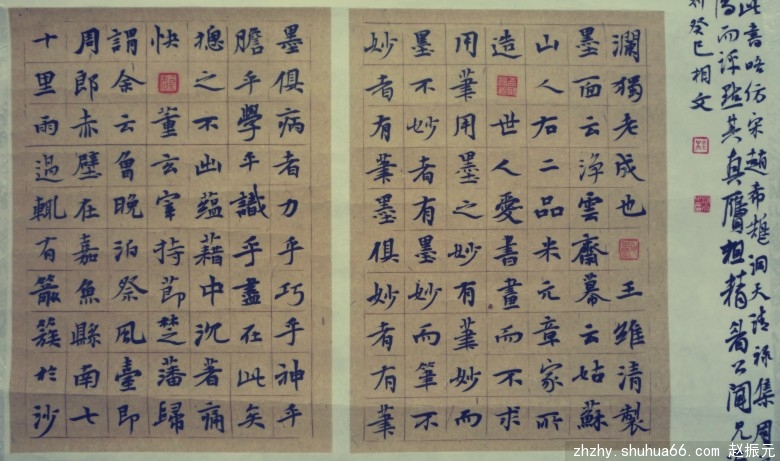 此書 仿宋趙希鵠洞天清祿集
而評點其真贗粗精
癸巳相文
瀾獨老成也王雖清製
墨面云淨雲齋幕云姑蘇
山人右二品米元章家所
造世人愛書畫而不求
用筆用墨之妙有筆妙而
墨不妙者有墨妙而筆不
妙者有筆墨俱妙者有筆
墨俱病者力乎巧乎神乎
膽乎學乎識乎盡在此矣
摠之不出蘊藉中沉著痛
快董玄宰持節楚藩歸
謂余云曾晚泊祭風臺即
周郎赤壁在嘉魚縣南七
十里雨過輒有箭簇於沙
zhzhy.shuhua66.com 赵振元